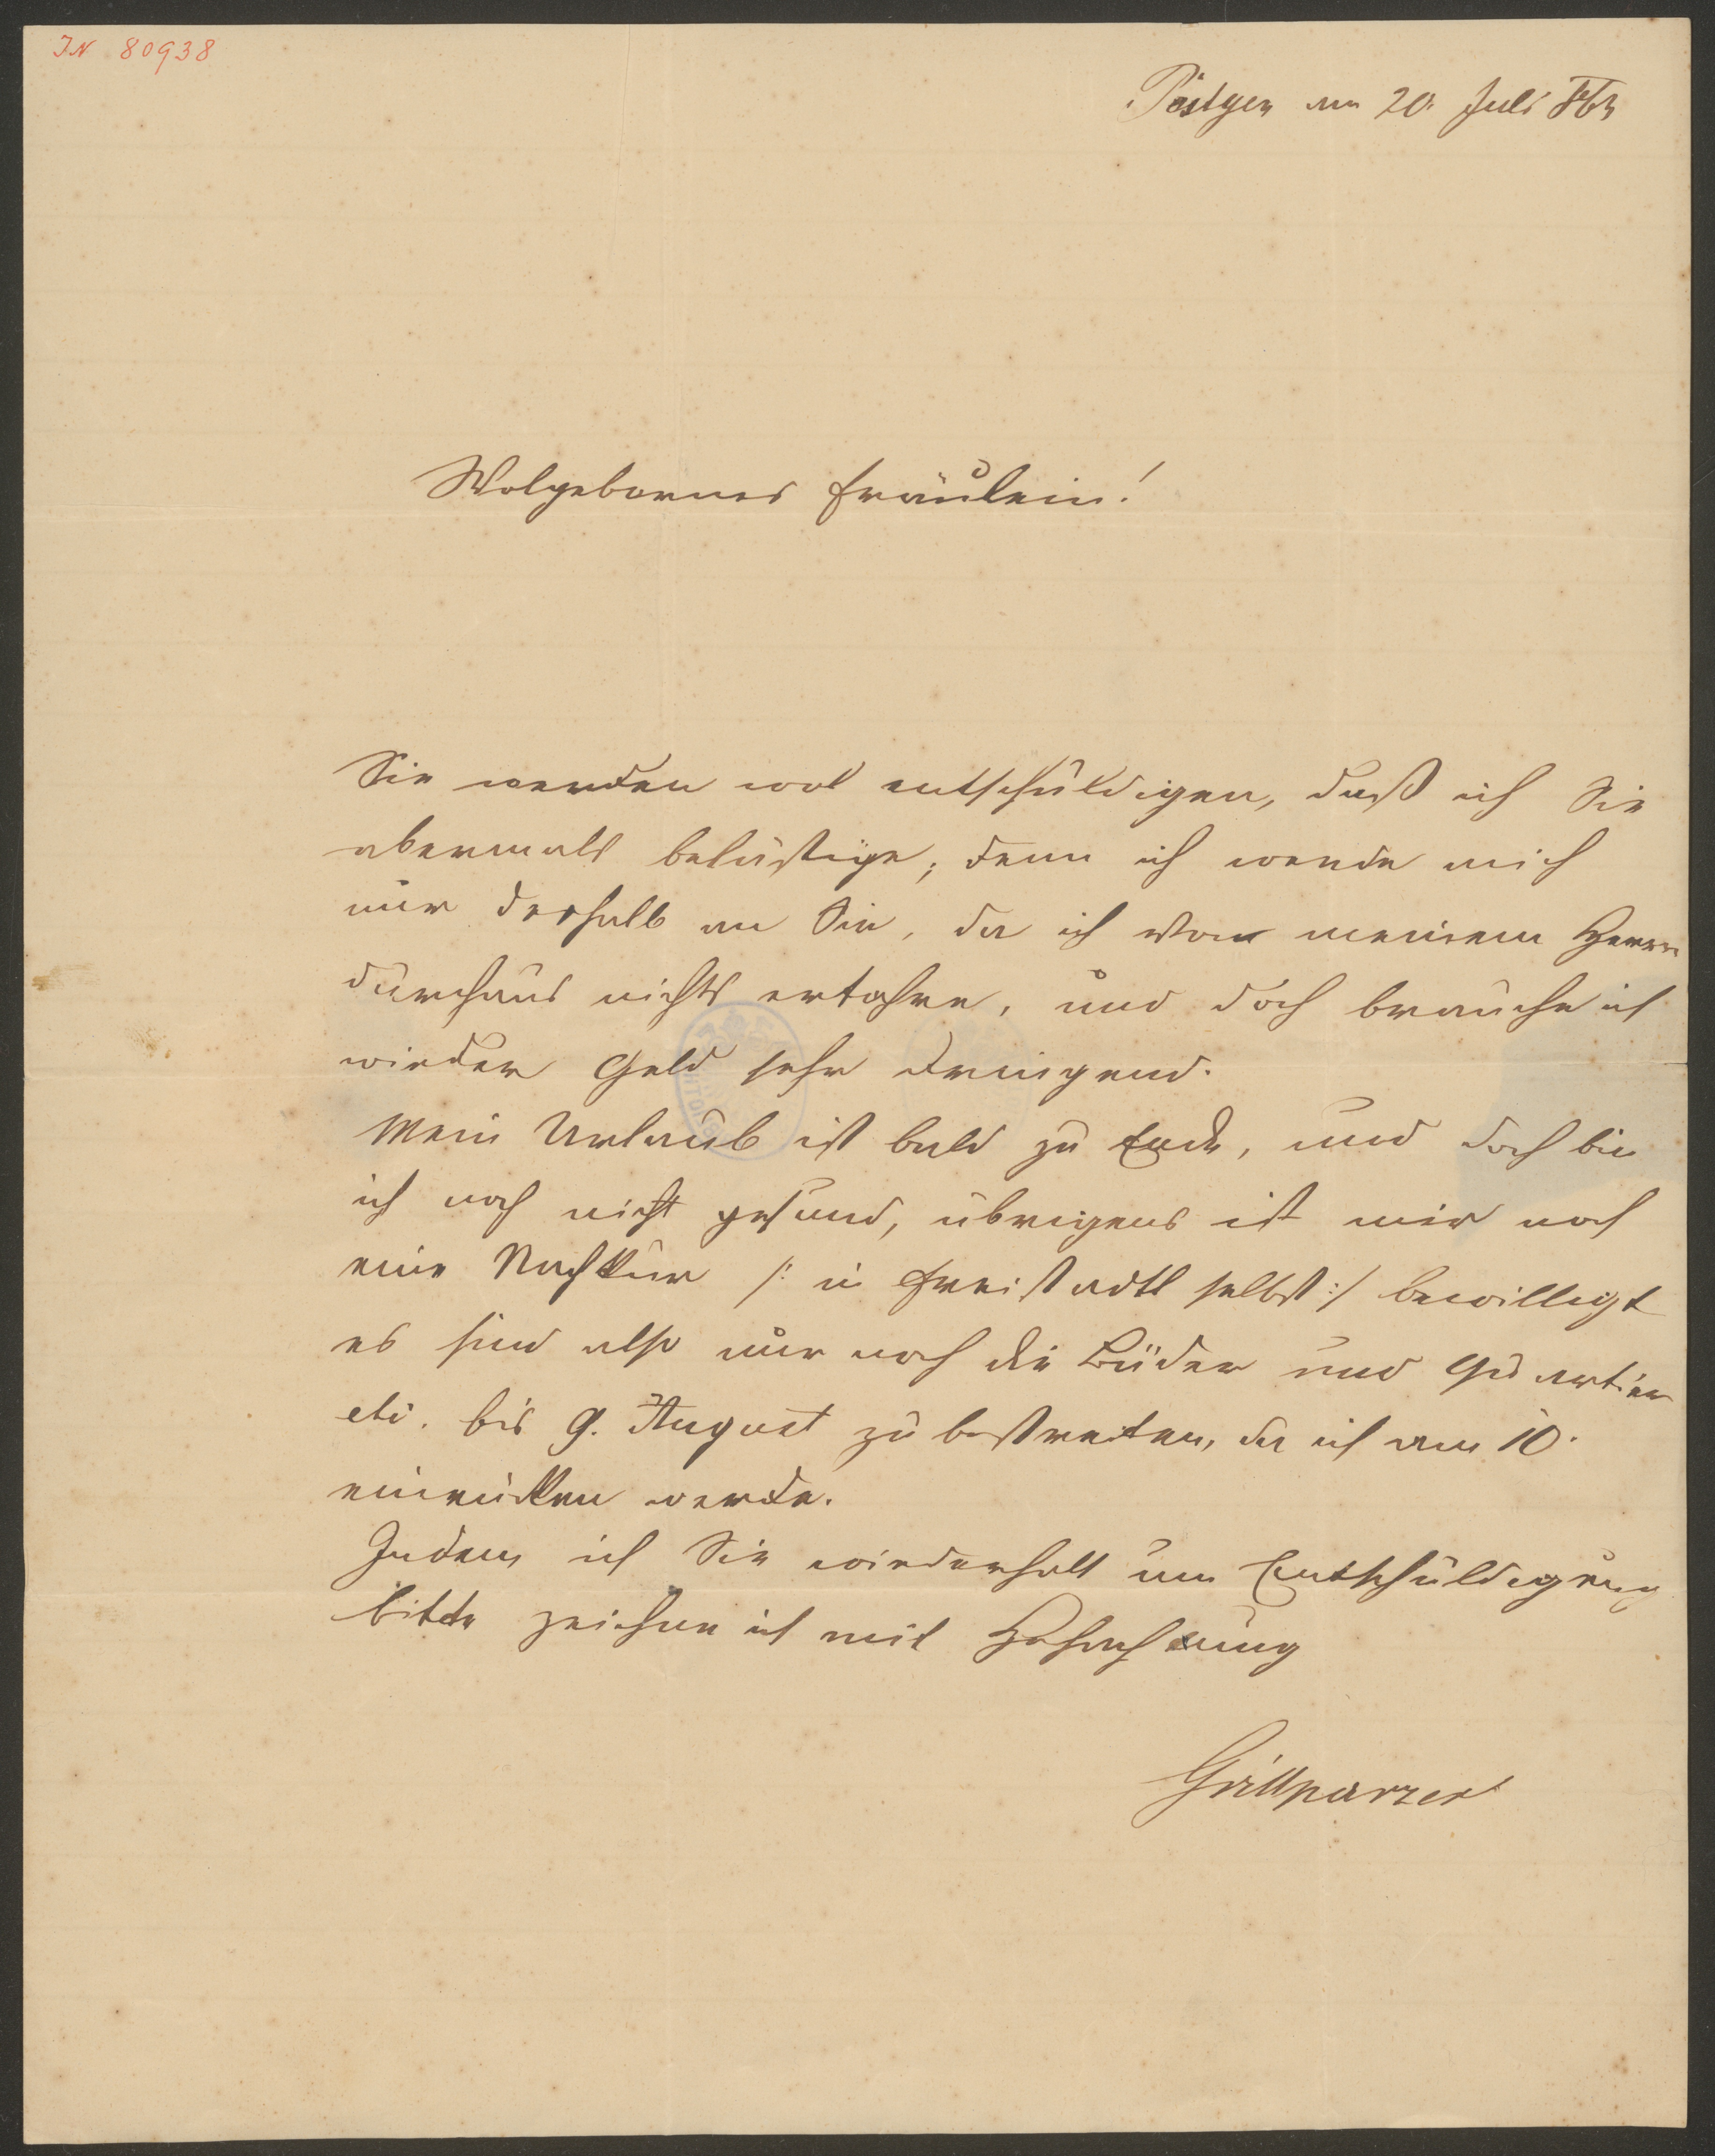 IN 80938
Pöstyen am 20. Juli
Wolgebornes Fräulein!
Sie werden wol entschuldigen, daß ich Sie
abermals belästige; denn ich wende mich
nur deshalb an Sie, da ich von meinem Herrn
durchaus nichts erfahre, und doch brauche ich
wieder Geld sehr dringend.
Mein Urlaub ist bald zu Ende, und doch bin
ich noch nicht gesund, übrigens ist mir noch
eine Nachkur /: in Freistadtl selbst :/ bewilligt
es sind also nur noch die Bäder und Quartier
etc. bis 9. August zu bestreiten, da ich am 10.
einrücken werde.
Indem ich Sie wiederholt um Entschuldigung
bitte zeichne ich mit Hochachtung
Grillparzer